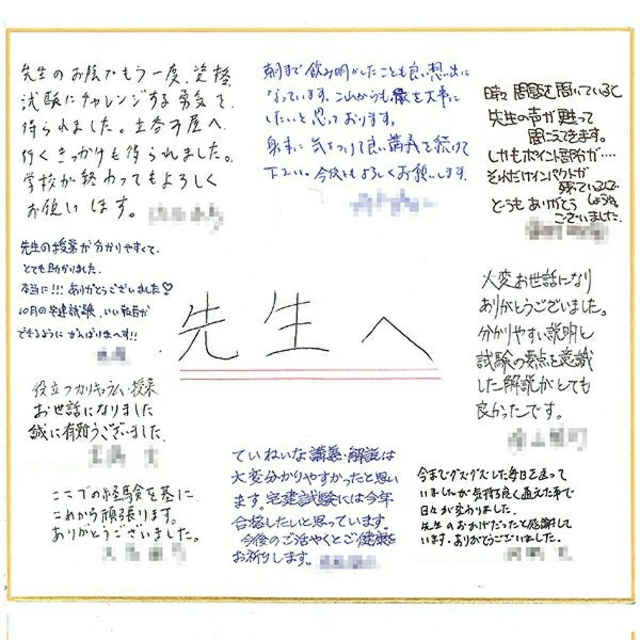 先生のお陰でもう一度、資格
試験にチャレンジする勇気を
得られました。土谷不屋へ
行くきっかけも得られました。
学校が終わってもよろしく
お願いします。
朝まで飲み明かしたことも良い想い出に
なっています。これからも縁を大事に
したいと思っております。
身体に気をつけて良い講義を続けて
下さい。今後ともよろしくお願いします。
時々問題を聞いていると
先生の声が甦って
聞こえてきます。
しかもポイント部分が…
それだけインパクトが
残っているでしょうね
どうもありがとう
ございました。
先生の授業が分かりやすくて、
とても助かりました。
本当に!!!ありがとうございました♡
10月の宅建試験、いい報告が
できるようにがんばりまーす!!
先生へ
大変お世話になり
ありがとうございました。
分かりやすい説明と
試験の要点を意識
した解説がとても
良かったです。
役立つカリキュラム・授業
お世話になりました
誠に有難うございました。
ここでの経験を基に
これから頑張ります。
ありがとうございました。
ていねいな講義・解説は
大変分かりやすかったと思い
ます。宅建試験には今年
合格したいと思っています。
今後のご活やくとご健勝を
お祈りします。
今までグズグズした毎日を送って
いましたが気持ち良く通えた事で
日々が変わりました。
先生のおかげだったと感謝して
います。ありがとうございました。